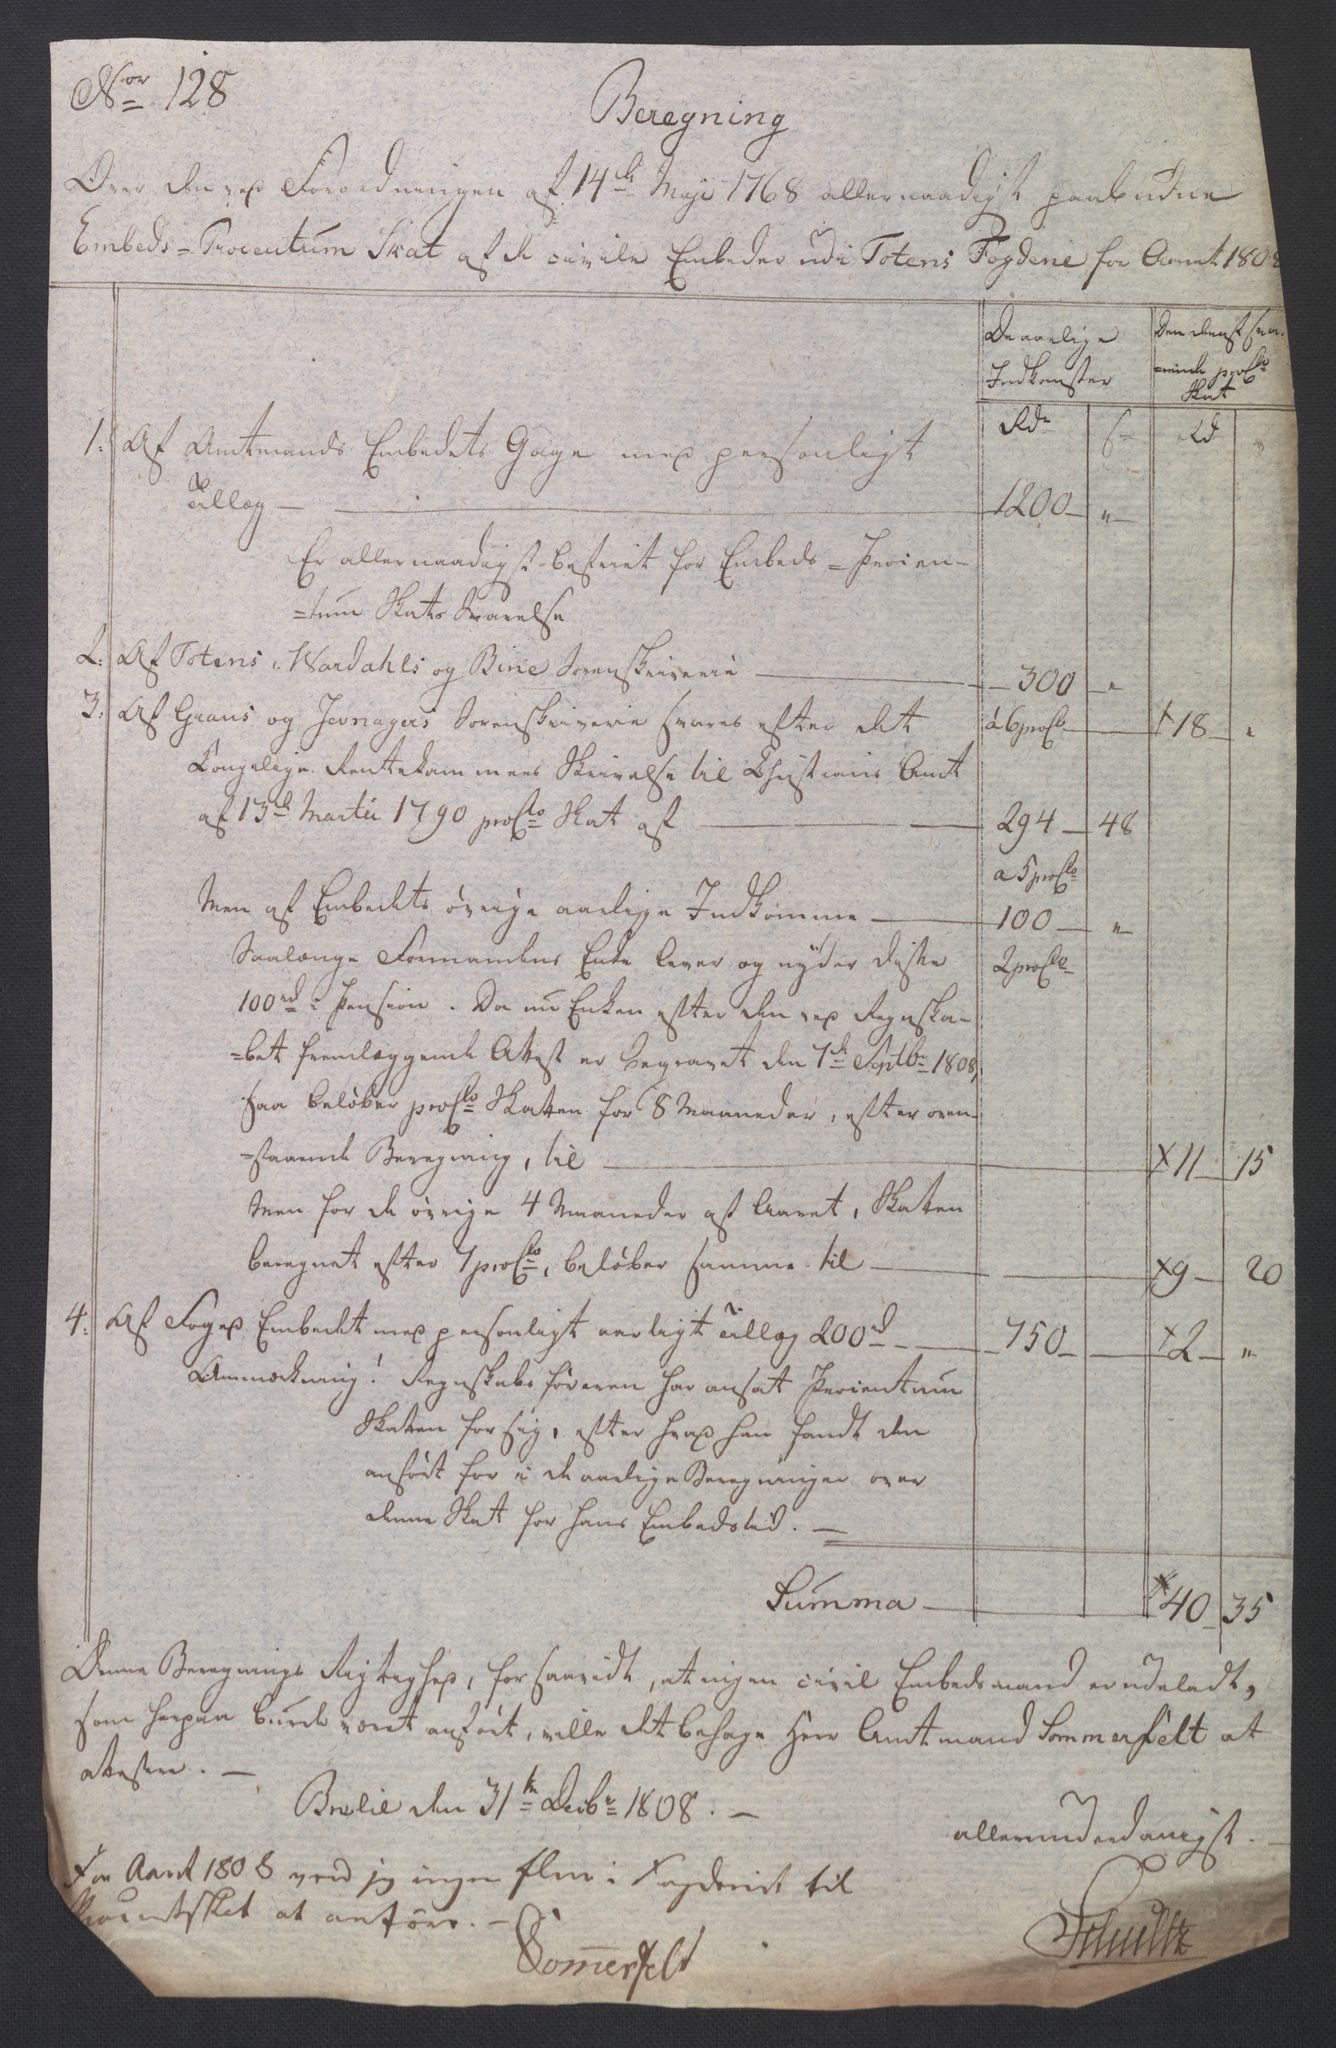 No̲r̲ 128
Beregning
Over den ved Forordningen af 14de Maji 1768 allernaadigst paabudne
Embeds=Procentum Skat af de civile Embeder udi Totens Fogderie for Aaret 1808
De aarlige Indkomster
Den deraf svarende proCto Skat
Rdr
s
Rd
1. Af Amtmands Embedets Gage med personligt
Tillæg — 1200 "
Er allernaadigst befriet for Embeds=Procen=
=tum Skats Svarelse
2. Af Totens, Wardahls og Birie Sorenskriverie — 300 "
3. Af Grans og Jevnagers Sorenskriverie svares efter det á 6 proCto — 18 "
Kongelige Rentekammers Skrivelse til Christians Amt
af 13de Martii 1790 proCto Skat af — 294 48
a 5 proCto
Men af Embedets øvrige aarlige Indkomme — 100 "
Saalænge Formandens Enke lever og nyder disse 2 proCto
100rd i Pension. Da nu Enken efter den ved Regnska=
=bet fremlæggende Attest er begravet den 7de Septbr 1808,
saa beløber proCto Skatten for 8 Maaneder, efter oven=
=staaende Beregning, til — 11 15
Men for de øvrige 4 Maaneder af Aaret, Skatten
beregnet efter 7 proCto, beløber samme til — 9 20
4. Af Foged Embedet med personligt aarligt Tillæg 200rd — 750 — 2 "
Anmærkning! Regnskabsføreren har ansat Procentum
Skatten for sig, efter hvad han fandt den
anført for i de aarlige Beregninger over
denne Skat for hans Embedstid. —
Summa — 40 35
Denne Beregnings Rigtighed, forsaavidt, at ingen civil Embedsmand er udeladt,
som herpaa burde været anført, ville det behage Herr Amtmand Sommerfelt at
attestere. —
Brelie den 31te Decbr 1808. —
allerunderdanigst —
For Aaret 1808 veed jeg ingen flere i Fogderiet til
Procentskat at anføre. —
Schultz
Sommerfelt